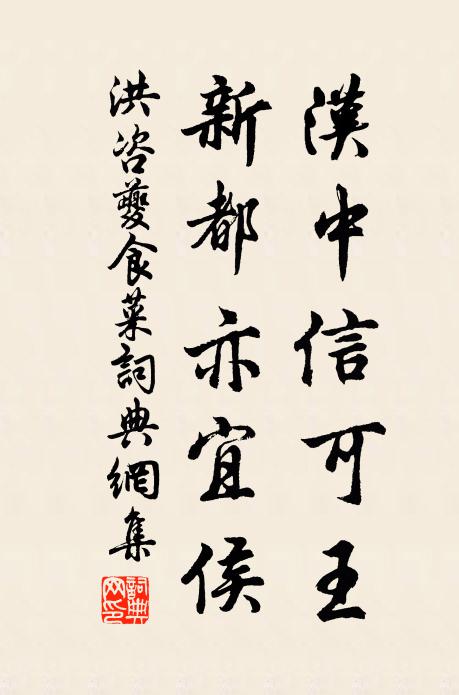 漢中信可王
新都亦宜侯
洪咨夔食菜詞典網集
詞典網印